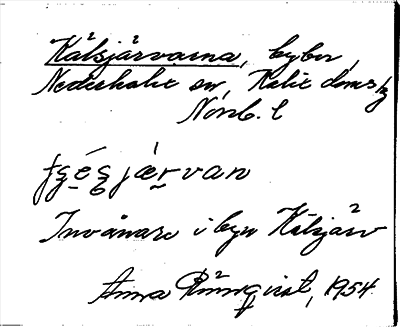 Kälsjärvarna, byber,
Nederkalix sn, Kalix doms.
Norrb. l
Invånare i byn Kälsjärv
Anna Rönnqvist, 1954